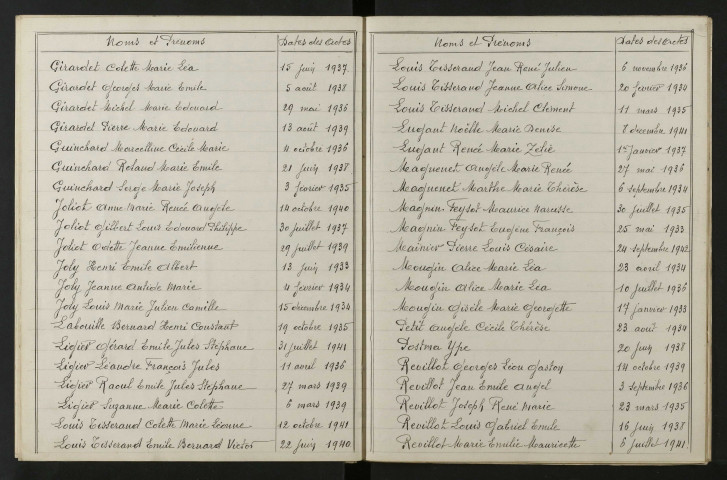 Noms et Prénoms Dates des actes
Girardet Colette Marie Léa 15 juin 1937
Girardet Georges Marie Emile 5 août 1938
Girardet Michel Marie Edouard 29 mai 1936
Girardet Pierre Marie Edouard 13 août 1939
Guinchard Marcelline Cécile Marie 4 octobre 1936
Guinchard Roland Marie Emile 21 juin 1938
Guinchard Serge Marie Joseph 3 février 1935
Joliot Anne Marie Renée Angèle 14 octobre 1940
Joliot Gilbert Louis Edouard Philippe 30 juillet 1937
Joliot Odette Jeanne Emilienne 29 juillet 1939
Joly Henri Emile Albert 13 juin 1933
Joly Jeanne Antide Marie 4 février 1934
Joly Louis Marie Julien Camille 15 décembre 1934
Labouille Bernard Henri Constant 19 octobre 1935
Ligier Gérard Emile Jules Stéphane 31 juillet 1941
Ligier Léandre François Jules 11 avril 1936
Ligier Raoul Emile Jules Stéphane 27 mars 1939
Ligier Suzanne Marie Colette 6 mars 1939
Louis Tisserand Colette Marie Léonne 12 octobre 1941
Louis Tisserand Emile Bernard Victor 22 juin 1940
Noms et Prénoms Dates des actes
Louis Tisserand Jean René Julien 6 novembre 1936
Louis Tisserand Jeanne Alice Simone 20 février 1934
Louis Tisserand Michel Clément 11 mars 1935
Lugant Noëlle Marie Denise 7 décembre 1941
Lugant Renée Marie Zélie 1er janvier 1937
Magnenet Angèle Marie Renée 27 mai 1936
Magnenet Marthe Marie Thérèse 6 septembre 1934
Magnin Feysot Maurice Narcisse 30 juillet 1935
Magnin Feysot Eugène François 25 mai 1933
Mainier Pierre Louis Césaire 24 septembre 1942
Mougin Alice Marie Léa 23 avril 1934
Mougin Alice Marie Léa 10 juillet 1936
Mougin Gisèle Marie Georgette 17 janvier 1933
Petit Angèle Cécile Thérèse 23 août 1934
Postma Ype 20 juin 1938
Revillot Georges Léon Gaston 14 octobre 1939
Revillot Jean Emile Angel 3 septembre 1936
Revillot Joseph René Marie 23 mars 1935
Revillot Louis Gabriel Emile 16 juin 1938
Revillot Marie Emilie Mauricette 6 juillet 1941